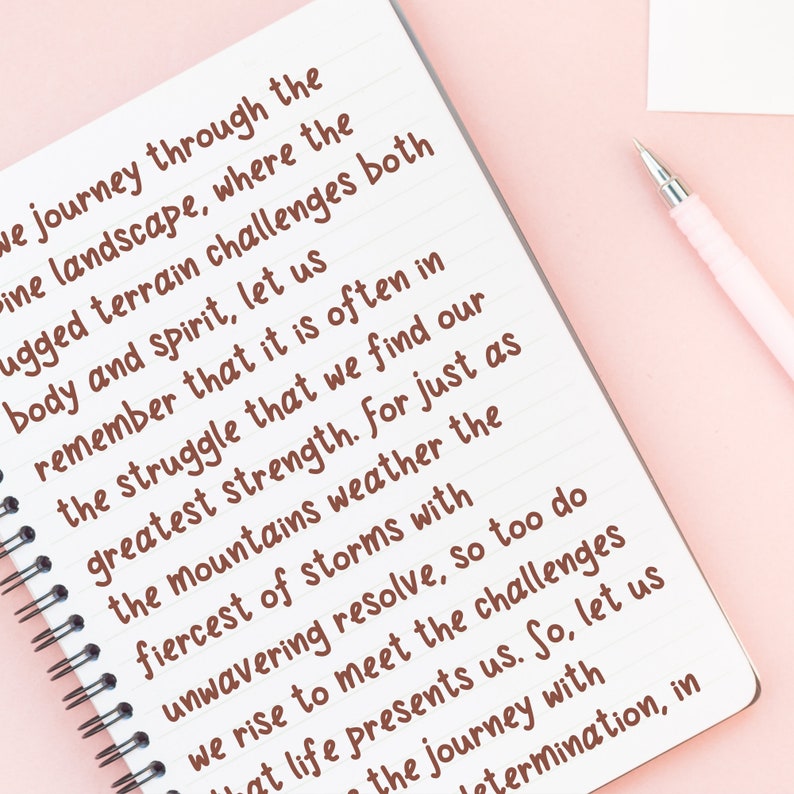 we journey through the
pine landscape, where the
ugged terrain challenges both
body and spirit, let us
remember that it is often in
the struggle that we find our
greatest strength. For just as
the mountains weather the
fiercest of storms with
unwavering resolve, so too do
we rise to meet the challenges
that life presents us. So, let us
the journey with
determination, in